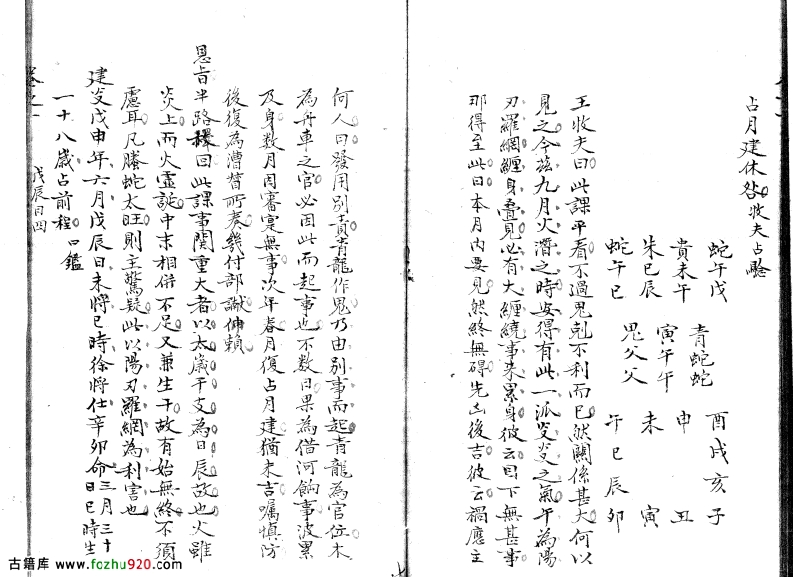 占月建休咎 牧夫占驗
蛇午戌 青蛇蛇 酉戌亥子
貴未午 寅午午 申 丑
朱巳辰 鬼父父 未 寅
蛇午巳 午巳辰卯
王牧夫曰此課平看不過鬼剋不利而已然關係甚大何以
見之今茲九月火潛之時安得有此一派炎炎之氣午為陽
刃羅網纏身疊見必有大纏繞事來累身彼云目下無甚事
那得至此曰本月內要見然終無碍先凶後吉彼云禍應主
何人曰發用別責青龍作鬼乃由別事而起青龍為官位木
為舟車之官必因此而起事也不數日果為借河餉事波累
及身數月因審寔無事次年春月復占月建猶未吉囑慎防
後復為漕督所奏幾付部讞伸賴
恩旨半路釋回此課事関重大者以太歲干支為日辰故也火雖
炎上而火靈誕中末相併不足又兼生干故有始無終不須
慮耳凡螣蛇太旺則主驚疑此以陽刃羅網為利害也
建炎戊申年六月戊辰日未將巳時徐將仕辛卯命三月三十
日巳時生
一十八歲占前程 口鑑
戊辰日四
古籍库 www.fozhu920.com